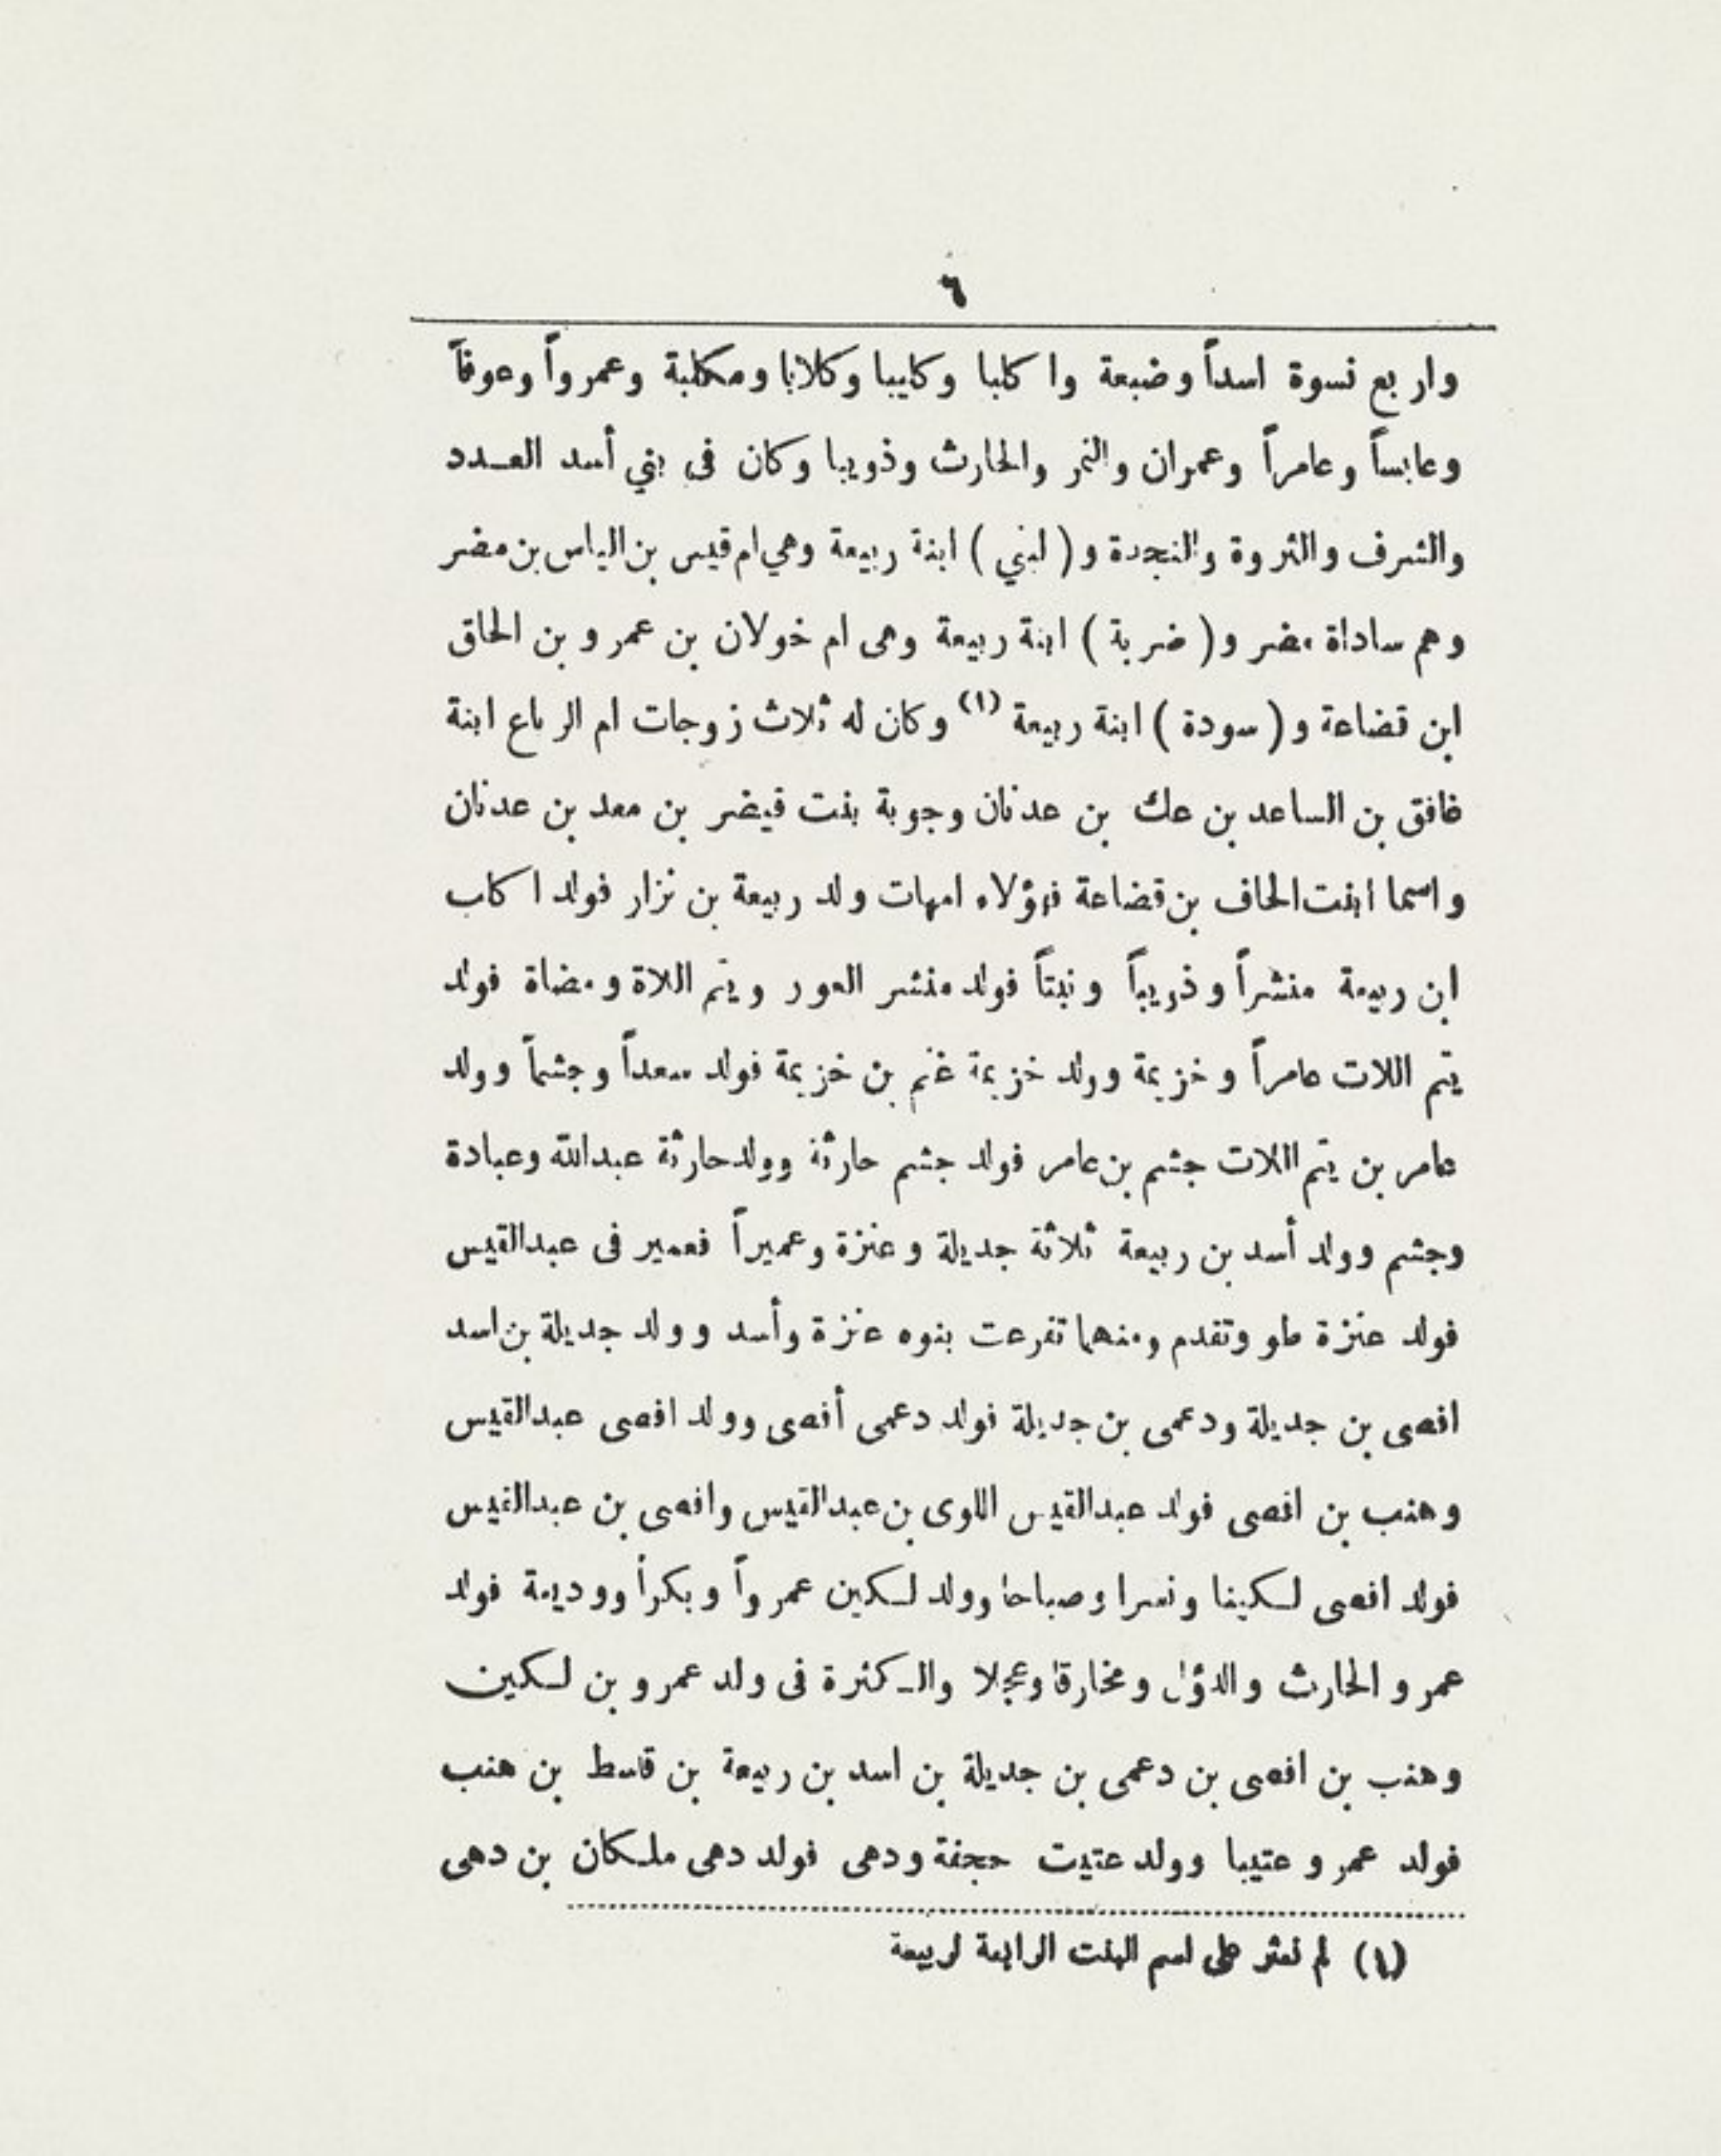 ٦
واربع نسوة اسداً وضبعة واكلبا وكليبا وكلابا ومكلبة وعمرواً وعوفاً
وعابساً وعامراً وعمران والنمر والحارث وذويبا وكان فى بني أسد العدد
والشرف والثروة والنجدة و( لبني ) ابنة ربيعة وهي ام قيس بن الياس بن مضر
وهم ساداة مضر و( ضربة ) ابنة ربيعة وهى ام خولان بن عمرو بن الحاق
ابن قضاعة و( سودة ) ابنة ربيعة (١) وكان له ثلاث زوجات ام الرباع ابنة
غافق بن الساعد بن عك بن عدنان وجوبة بنت قيضر بن معد بن عدنان
واسما ابنت الحاف بن قضاعة فهؤلاء امهات ولد ربيعة بن نزار فولد اكلب
ابن ربيعة منشراً وذريباً ونبتاً فولد منشر العور ويتم اللاة ومضاة فولد
يتم اللات عامراً وخزيمة وولد خزيمة غنم بن خزيمة فولد سعداً وجشماً وولد
عامر بن يتم اللات جشم بن عامر فولد جشم حارثة وولد حارثة عبدالله وعبادة
وجشم وولد أسد بن ربيعة ثلاثة جديلة وعنزة وعميراً فعمير فى عبدالقيس
فولد عنزة طو وتقدم ومنهما تفرعت بنوه عنزة وأسد وولد جديلة بن اسد
افصى بن جديلة ودعمى بن جديلة فولد دعمى أفصى وولد افصى عبدالقيس
وهنب بن افصى فولد عبدالقيس اللوى بن عبدالقيس وافصى بن عبدالقيس
فولد افصى لكينا ونسرا وصباحا وولد لكين عمرواً وبكراً ووديعة فولد
عمرو الحارث والدؤل ومخارقا وعجلا والكثرة فى ولد عمرو بن لكين
وهنب بن افصى بن دعمى بن جديلة بن اسد بن ربيعة بن قاسط بن هنب
فولد عمرو عتيبا وولد عتيت حجفة ودهى فولد دهى ملكان بن دهى
(١) لم نعثر على اسم البنت الرابعة لربيعة